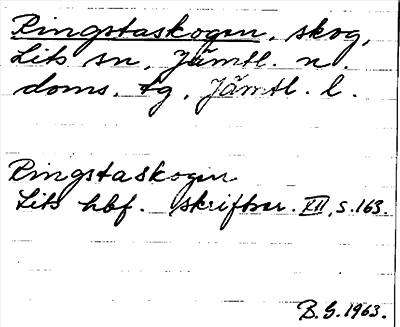 Ringstaskogen, skog,
Lits sn, Jämtl. n.
doms. tg, Jämtl. l.
Ringstaskogen
Lits hbf. skriftser. VII, s. 163.
B.G. 1963.